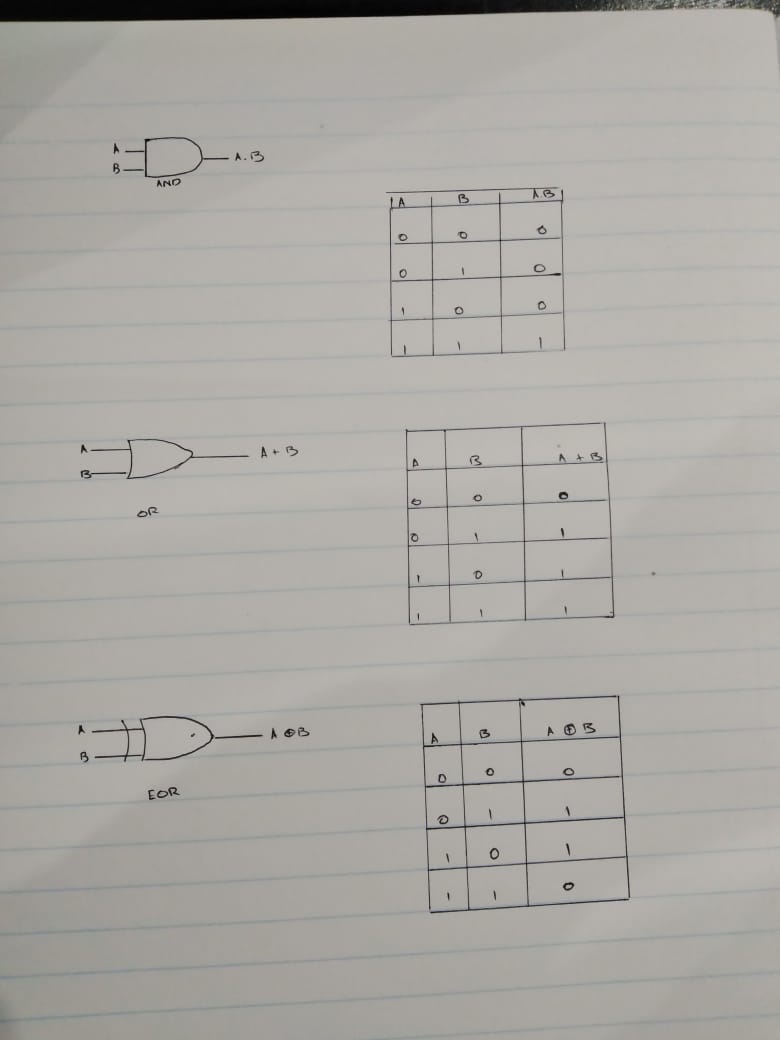 A
B
A.B
AND
A B A.B
0 0 0
0 1 0
1 0 0
1 1 1
A
B
A + B
OR
A B A + B
0 0 0
0 1 1
1 0 1
1 1 1
A
B
A ⊕ B
EOR
A B A ⊕ B
0 0 0
0 1 1
1 0 1
1 1 0